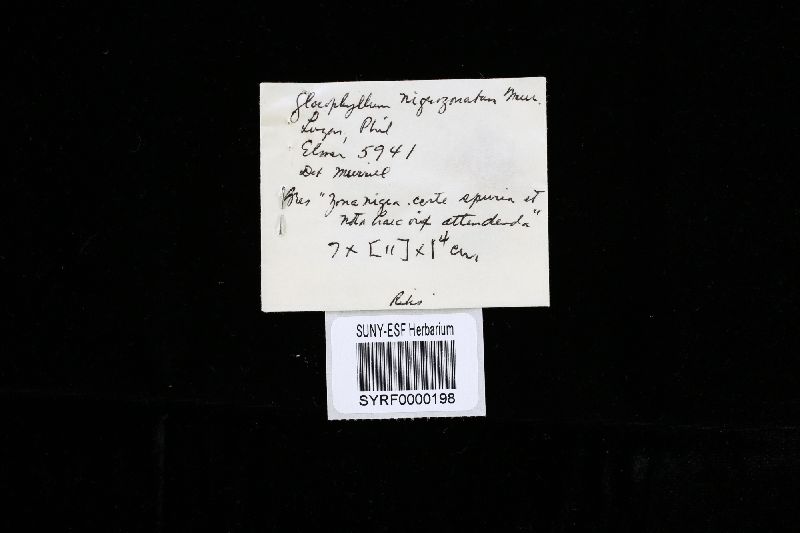 Gloeophyllum nigrozonatum Murr.
Luzon, Phil
Elmer 5941
Det Murrill
Bres "Zona nigra certe spuria et
nota haec vix attendenda"
7 x [11] x 1 4 cm,
SUNY-ESF Herbarium
SYRF0000198